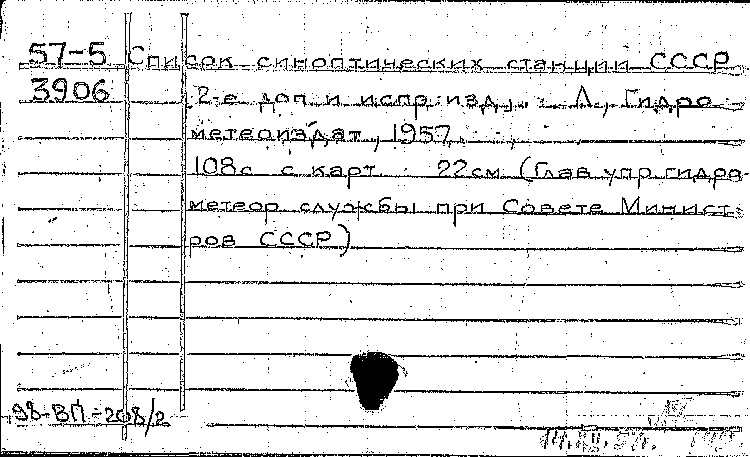 57-5 Список синоптических станции СССР
3906 [2-е доп и испр. изд]. Л., Гидро-
метеоиздат, 1957.
108с с карт. 22см (Глав упр. гидро-
метеор службы при Совете Минист-
ров СССР)
98-ВП-208/2